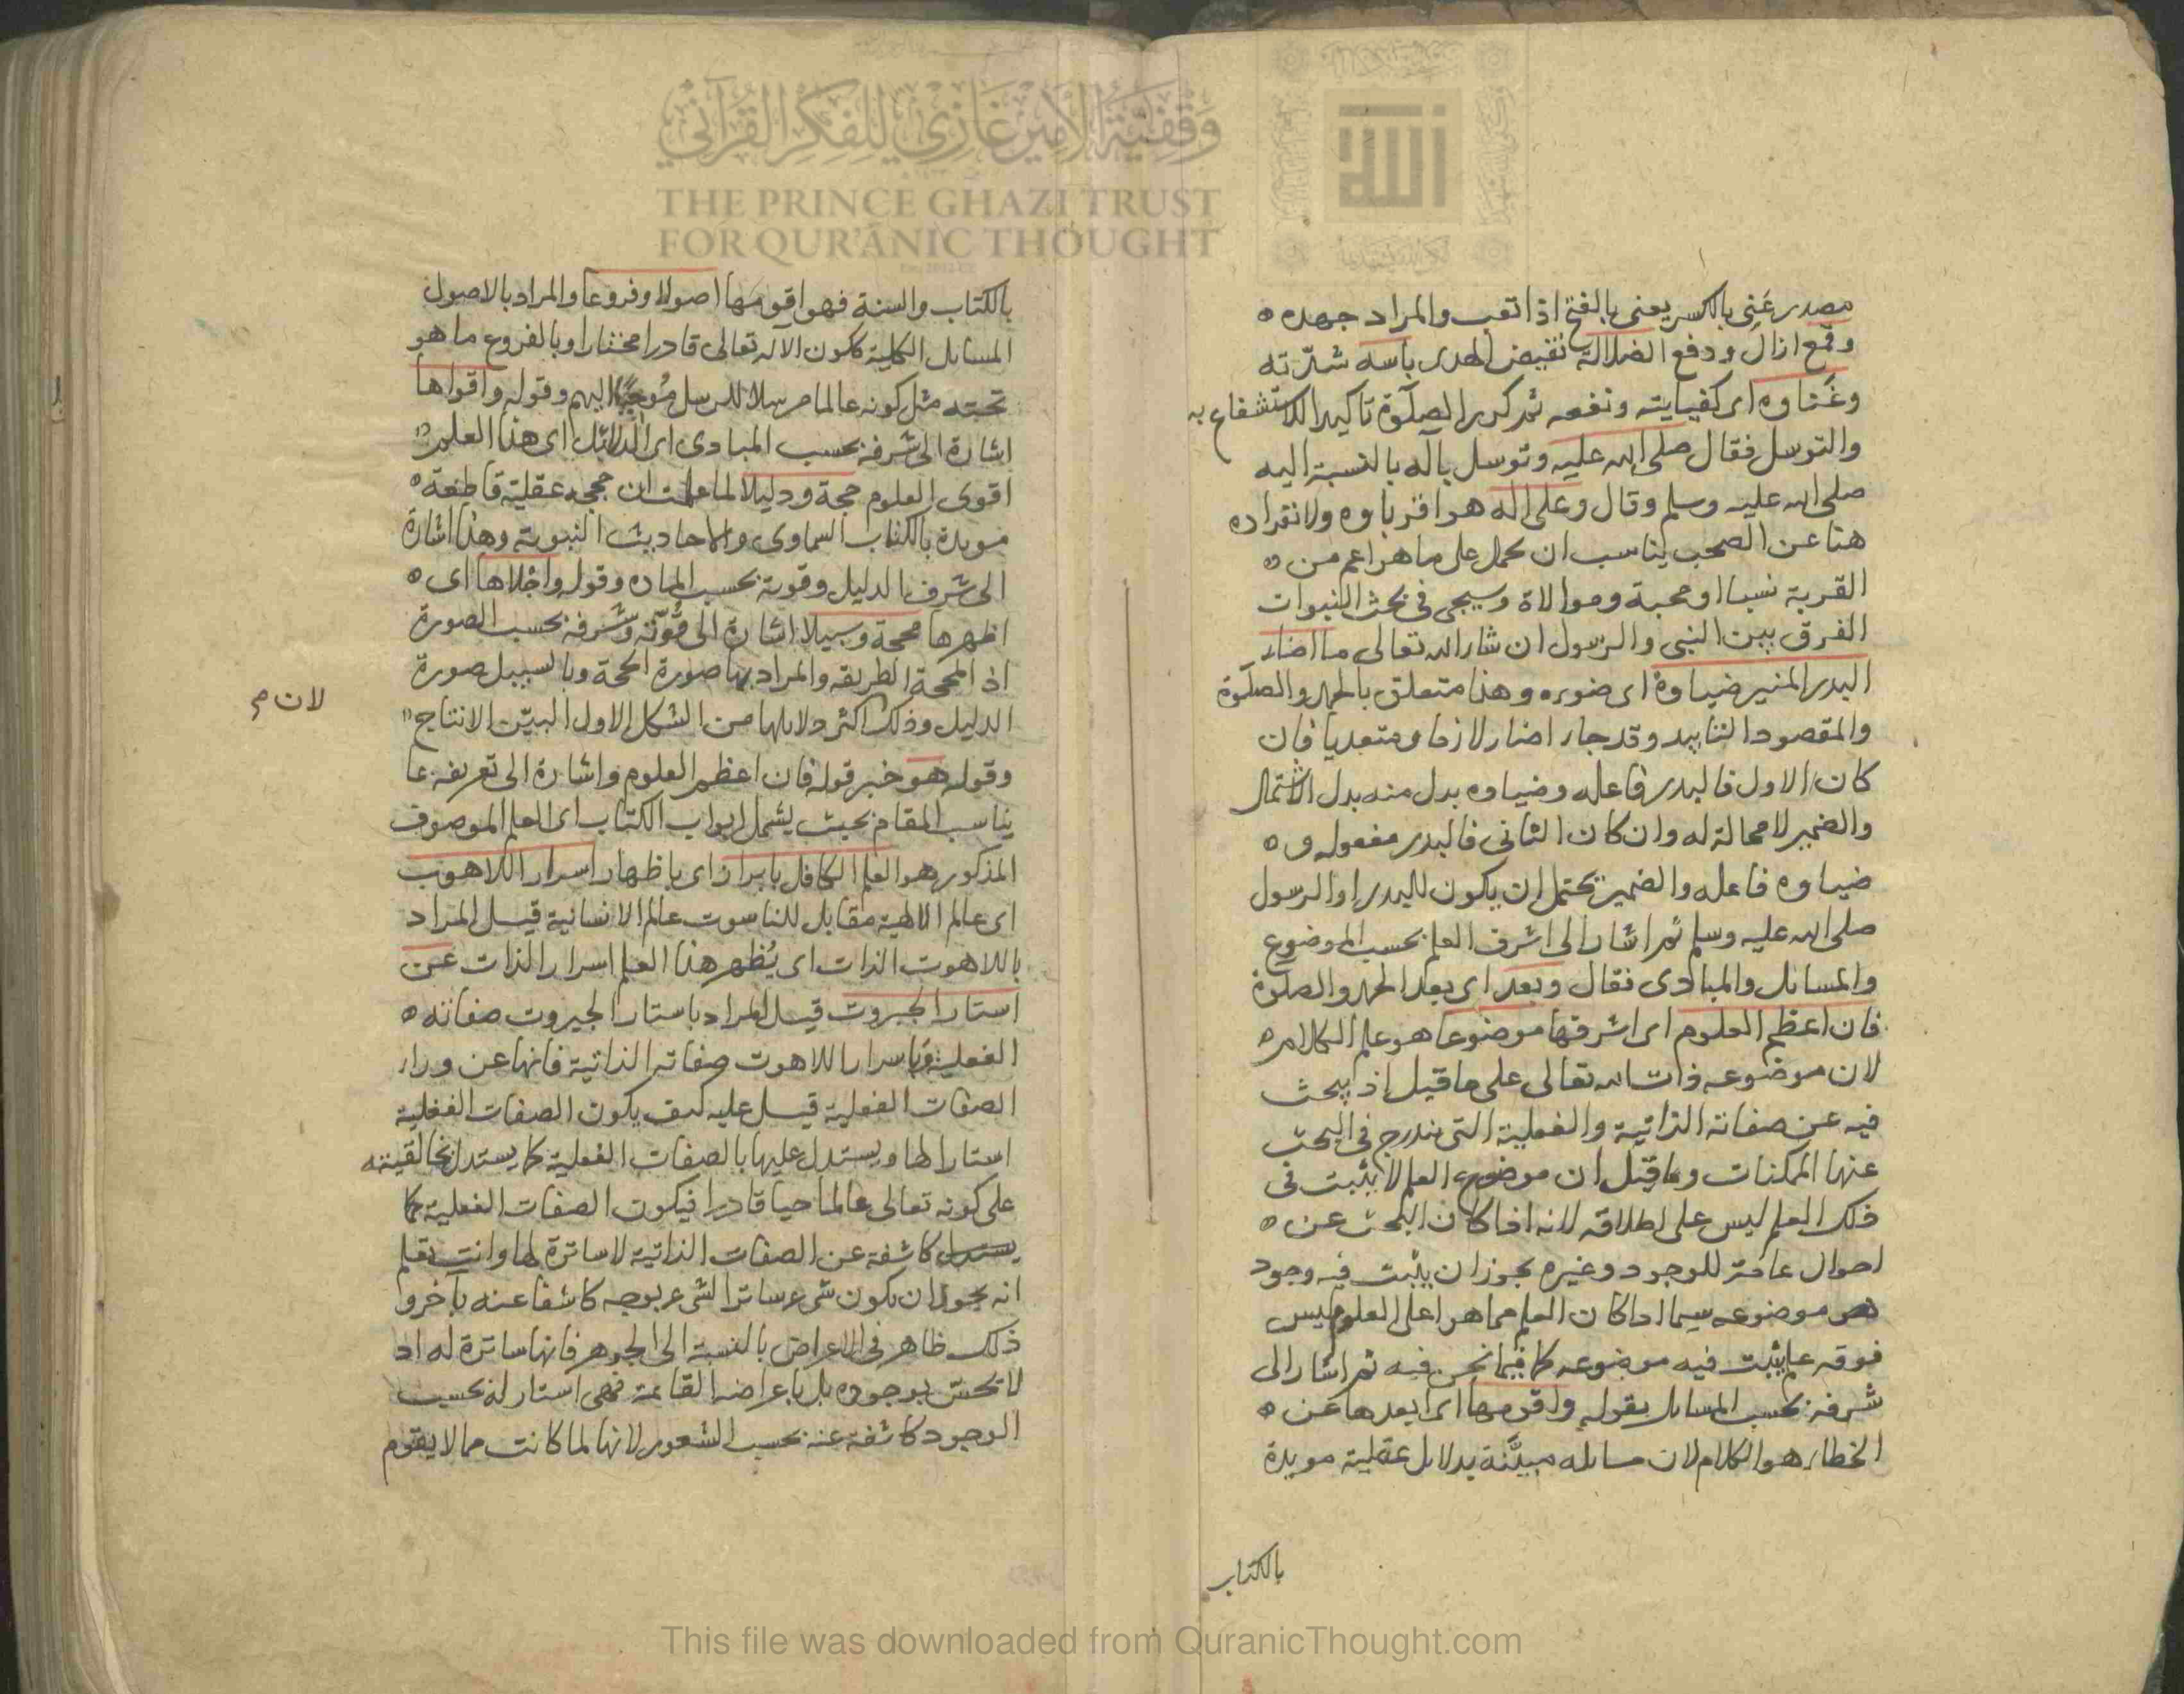 مصدر عَنِى بالكسر يعنى بالفتح اذا تعب والمراد جهده
وقمع ازال ودفع الضلالة نقيض الهدى باسه شدّته
وغَناوه اى كفايته ونفعه ثم كرر الصلوة تاكيدا للاستشفاع به
والتوسل فقال صلى الله عليه وتوسل بآله بالنسبة اليه
صلى الله عليه وسلم وقال وعلى اله هم اقرباوه ولانفراده
هنا عن الصحب يناسب ان يحمل على ما هو اعم من
القربة نسبا او محبة وموالاة وسيجى فى بحث النبوات
الفرق بين النبى والرسول ان شاء الله تعالى ما اضاء
البدر المنير ضياوه اى ضوءه وهذا متعلق بالحمد والصلوة
والمقصود التابيد وقد جاء اضاء لازما ومتعديا فان
كان الاول فالبدر فاعله وضياوه بدل منه بدل الاشتمال
والضمير لا محالة له وان كان الثانى فالبدر مفعوله و
ضياوه فاعله والضمير يحتمل ان يكون للبدر او الرسول
صلى الله عليه وسلم ثم اشار الى اشرف العلم بحسب الموضوع
والمسايل والمبادى فقال وبعد اى بعد الحمد والصلوة
فان اعظم العلوم اى اشرفها موضوعا هو علم الكلام
لان موضوعه ذات الله تعالى على ما قيل اذ يبحث
فيه عن صفاته الذاتية والفعلية التى يندرج فى البحث
عنها الممكنات وما قيل ان موضوع العلم لا يثبت فى
ذلك العلم ليس على اطلاقه لانه اذا كان البحث عن
احوال عامة للوجود وغيره يجوز ان يثبت فيه وجود
موضوعه سيما اذا كان العلم مما هو اعلى العلوم ليس
فوقه علم يثبت فيه موضوعه كما فيما نحن فيه ثم اشار الى
شرفه بحسب المسايل بقوله واقومها اى ابعدها عن
الخطاء هو الكلام لان مسايله مبيَّنة بدلايل عقلية مويدة
بالكتاب
بالكتاب والسنة فهو اقومها اصولا وفروعا والمراد بالاصول
المسايل الكلية ككون الاله تعالى قادرا مختارا وبالفروع ما هو
تحته مثل كونه عالما مرسلا للرسل مُوحِيًا اليهم وقوله واقواها
اشارة الى شرفه بحسب المبادى اى الدلائل اى هذا العلم
اقوى العلوم حجة ودليلا لما علمت ان حججه عقلية قاطعة
مويدة بالكتاب السماوى والاحاديث النبوية وهذا اشارة
الى شرف الدليل وقوته بحسب المادة وقوله واجلاها اى
اظهرها محجة وسبيلا اشارة الى قُوّته وشرفه بحسب الصورة
اذ المحجة الطريقه والمراد بها صورة الحجة وبالسبيل صورة
الدليل وذلك اكثر دلايلها من الشكل الاول البيّن الانتاج
لان م
وقوله هو خبر قوله فان اعظم العلوم واشارة الى تعريفه عا
يناسب المقام بحيث يشمل ابواب الكتاب اى العلم الموصوف
المذكور هو العلم الكافل بابراز اى باظهار اسرار اللاهوت
اى عالم الالهية مقابل للناسوت عالم الانسانية قيل المراد
باللاهوت الذات اى يُظهر هذا العلم اسرار الذات عن
استار الجبروت قيل المراد باستار الجبروت صفاته
الفعلية وباسرار اللاهوت صفاته الذاتية فانها عن وراء
الصفات الفعلية قيل عليه كيف يكون الصفات الفعلية
استارا لها ويستدل عليها بالصفات الفعلية كما يستدل بخالقيته
على كونه تعالى عالما حيا قادرا فيكون الصفات الفعلية كما
يستدل كاشفة عن الصفات الذاتية لا ساترة لها وانت تعلم
انه يجوز ان يكون شىء ساترا لشىء بوجه كاشفا عنه بآخر و
ذلك ظاهر فى الاعراض بالنسبة الى الجوهر فانها ساترة له اذ
لا تحس بوجوده بل باعراضه القائمة فهى استار له بحسب
الوجود كاشفة عنه بحسب الشعور لانها لما كانت مما لا يقوم
وقفية الأمير غازي للفكر القرآني
THE PRINCE GHAZI TRUST
FOR QUR'ĀNIC THOUGHT
This file was downloaded from QuranicThought.com